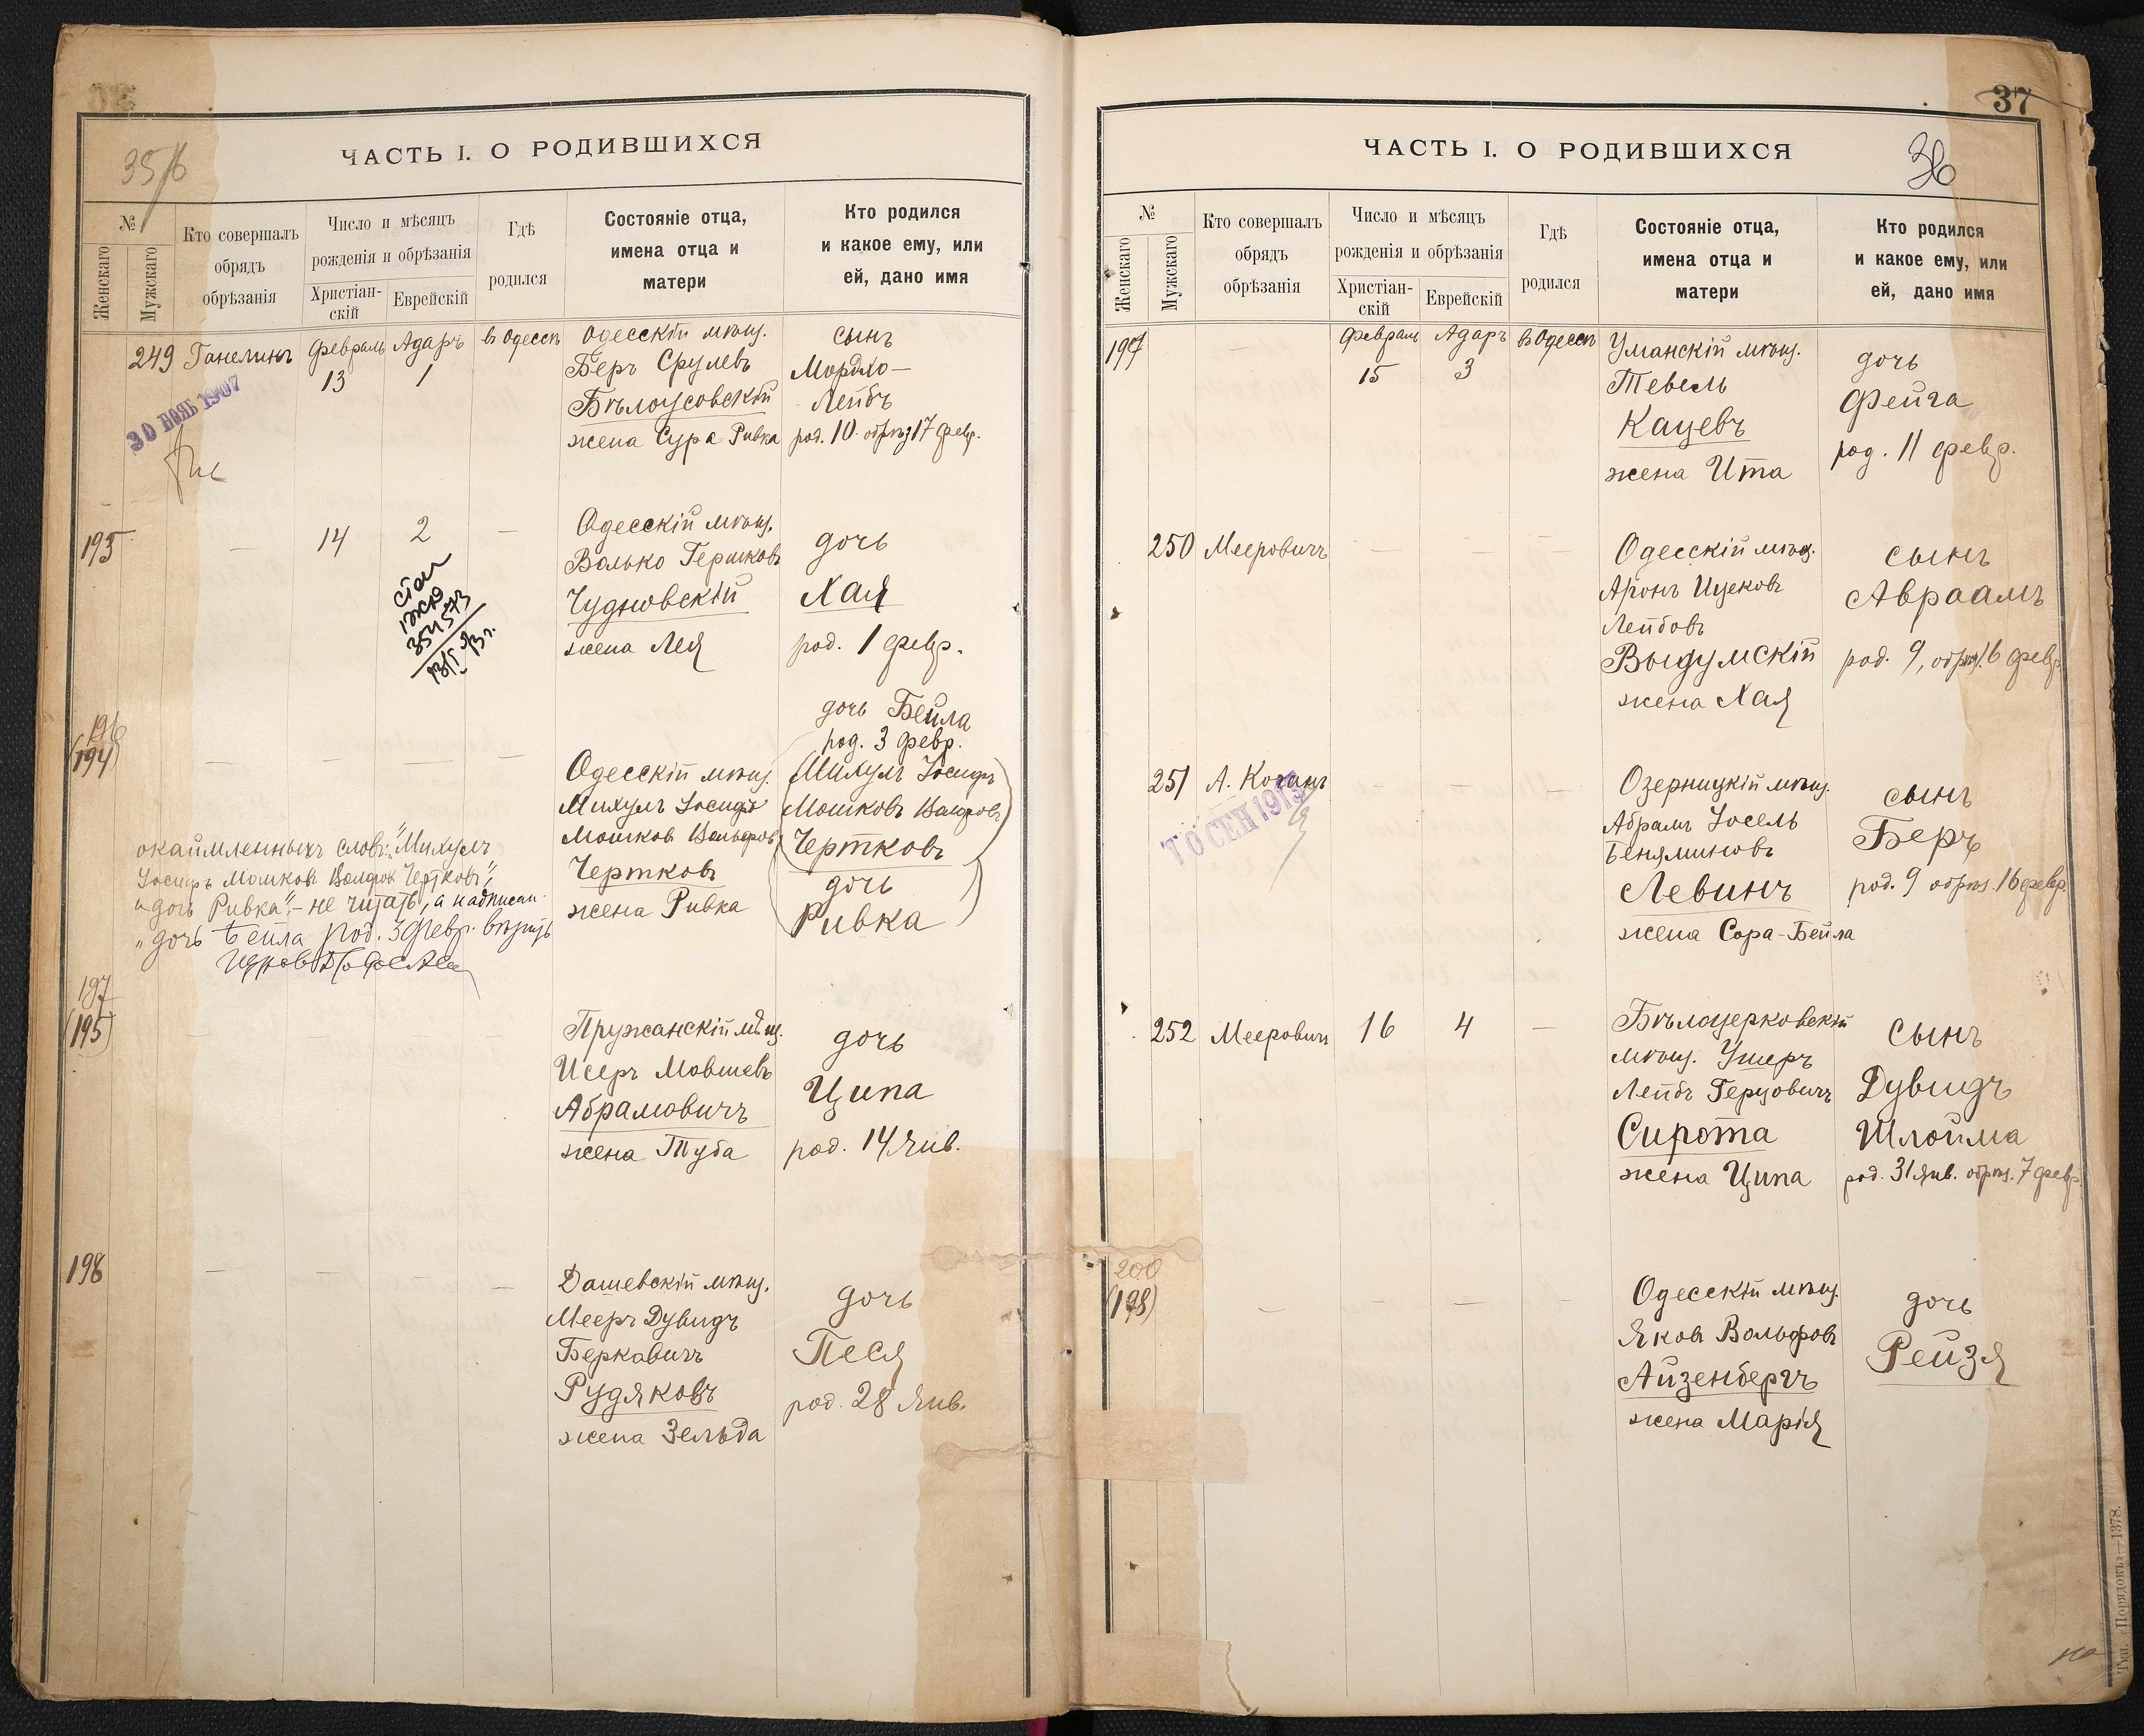 ЧАСТЬ I. О РОДИВШИХСЯ
№
Женскаго
Мужскаго
Кто совершалъ
обрядъ
обрѣзанія
Число и мѣсяцъ
рожденія и обрѣзанія
Христіан-
скій
Еврейскій
Гдѣ
родился
Состояніе отца,
имена отца и
матери
Кто родился
и какое ему, или
ей, дано имя
249 Ганелинъ Февраль 13 Адаръ 1 въ Одессѣ
30 НОЯБ 1907
Одесскій мѣщ.
Беръ Срулевъ
Бѣлоусовскій
жена Сура Ривка
сынъ
Мордко-
Лейбъ
род. 10. обрѣз 17 февр.
195 — 14 2 —
Одесскій мѣщ.
Волько Гершковъ
Чудновскій
жена Лея
дочь
Хая
род. 1 февр.
354573
196
(194) — — — —
Одесскій мѣщ.
Михуль Іосифъ
Мошковъ Вольфовъ
Чертковъ
жена Ривка
дочь Бейла
род. 3 февр.
(Михуль Іосифъ
Мошковъ Вольфовъ
Чертковъ)
(дочь
Ривка)
окаймленныхъ словъ: "Михуль
Іосифъ Мошковъ Вольфовъ Чертковъ",
и "дочь Ривка" - не читать, а надписан.
"дочь Бейла род. 3 февр. вѣрить
197
(195) — — — —
Пружанскій мѣщ.
Исеръ Мовшевъ
Абрамовичъ
жена Туба
дочь
Ципа
род. 14 Янв.
198 — — — —
Дашевскій мѣщ.
Мееръ Дувидъ
Беркавичъ
Рудяковъ
жена Зельда
дочь
Песя
род. 28 Янв.
37
36
ЧАСТЬ I. О РОДИВШИХСЯ
№
Женскаго
Мужскаго
Кто совершалъ
обрядъ
обрѣзанія
Число и мѣсяцъ
рожденія и обрѣзанія
Христіан-
скій
Еврейскій
Гдѣ
родился
Состояніе отца,
имена отца и
матери
Кто родился
и какое ему, или
ей, дано имя
199 — Февраль 15 Адаръ 3 въ Одессѣ
Уманскій мѣщ.
Тевель
Кацевъ
жена Ита
дочь
Фейга
род. 11 февр.
250 Мееровичъ — — —
Одесскій мѣщ.
Аронъ Ицековъ
Лейбовъ
Выдумскій
жена Хая
сынъ
Авраамъ
род. 9, обрѣз. 16 февр.
251 А. Коганъ — — —
Озерницкій мѣщ.
Абрамъ Іосель
Беняминовъ
Левинъ
жена Сора-Бейла
сынъ
Беръ
род. 9 обрѣз. 16 февр.
252 Мееровичъ 16 4 —
Бѣлоцерковскій
мѣщ. Ушеръ
Лейбъ Герцовичъ
Сирота
жена Ципа
сынъ
Дувидъ
Шлойма
род. 31 Янв. обрѣз. 7 февр.
200
(198) — — — —
Одесскій мѣщ.
Яковъ Вольфовъ
Айзенбергъ
жена Марія
дочь
Рейзя
Тип. «Порядокъ»—1378.